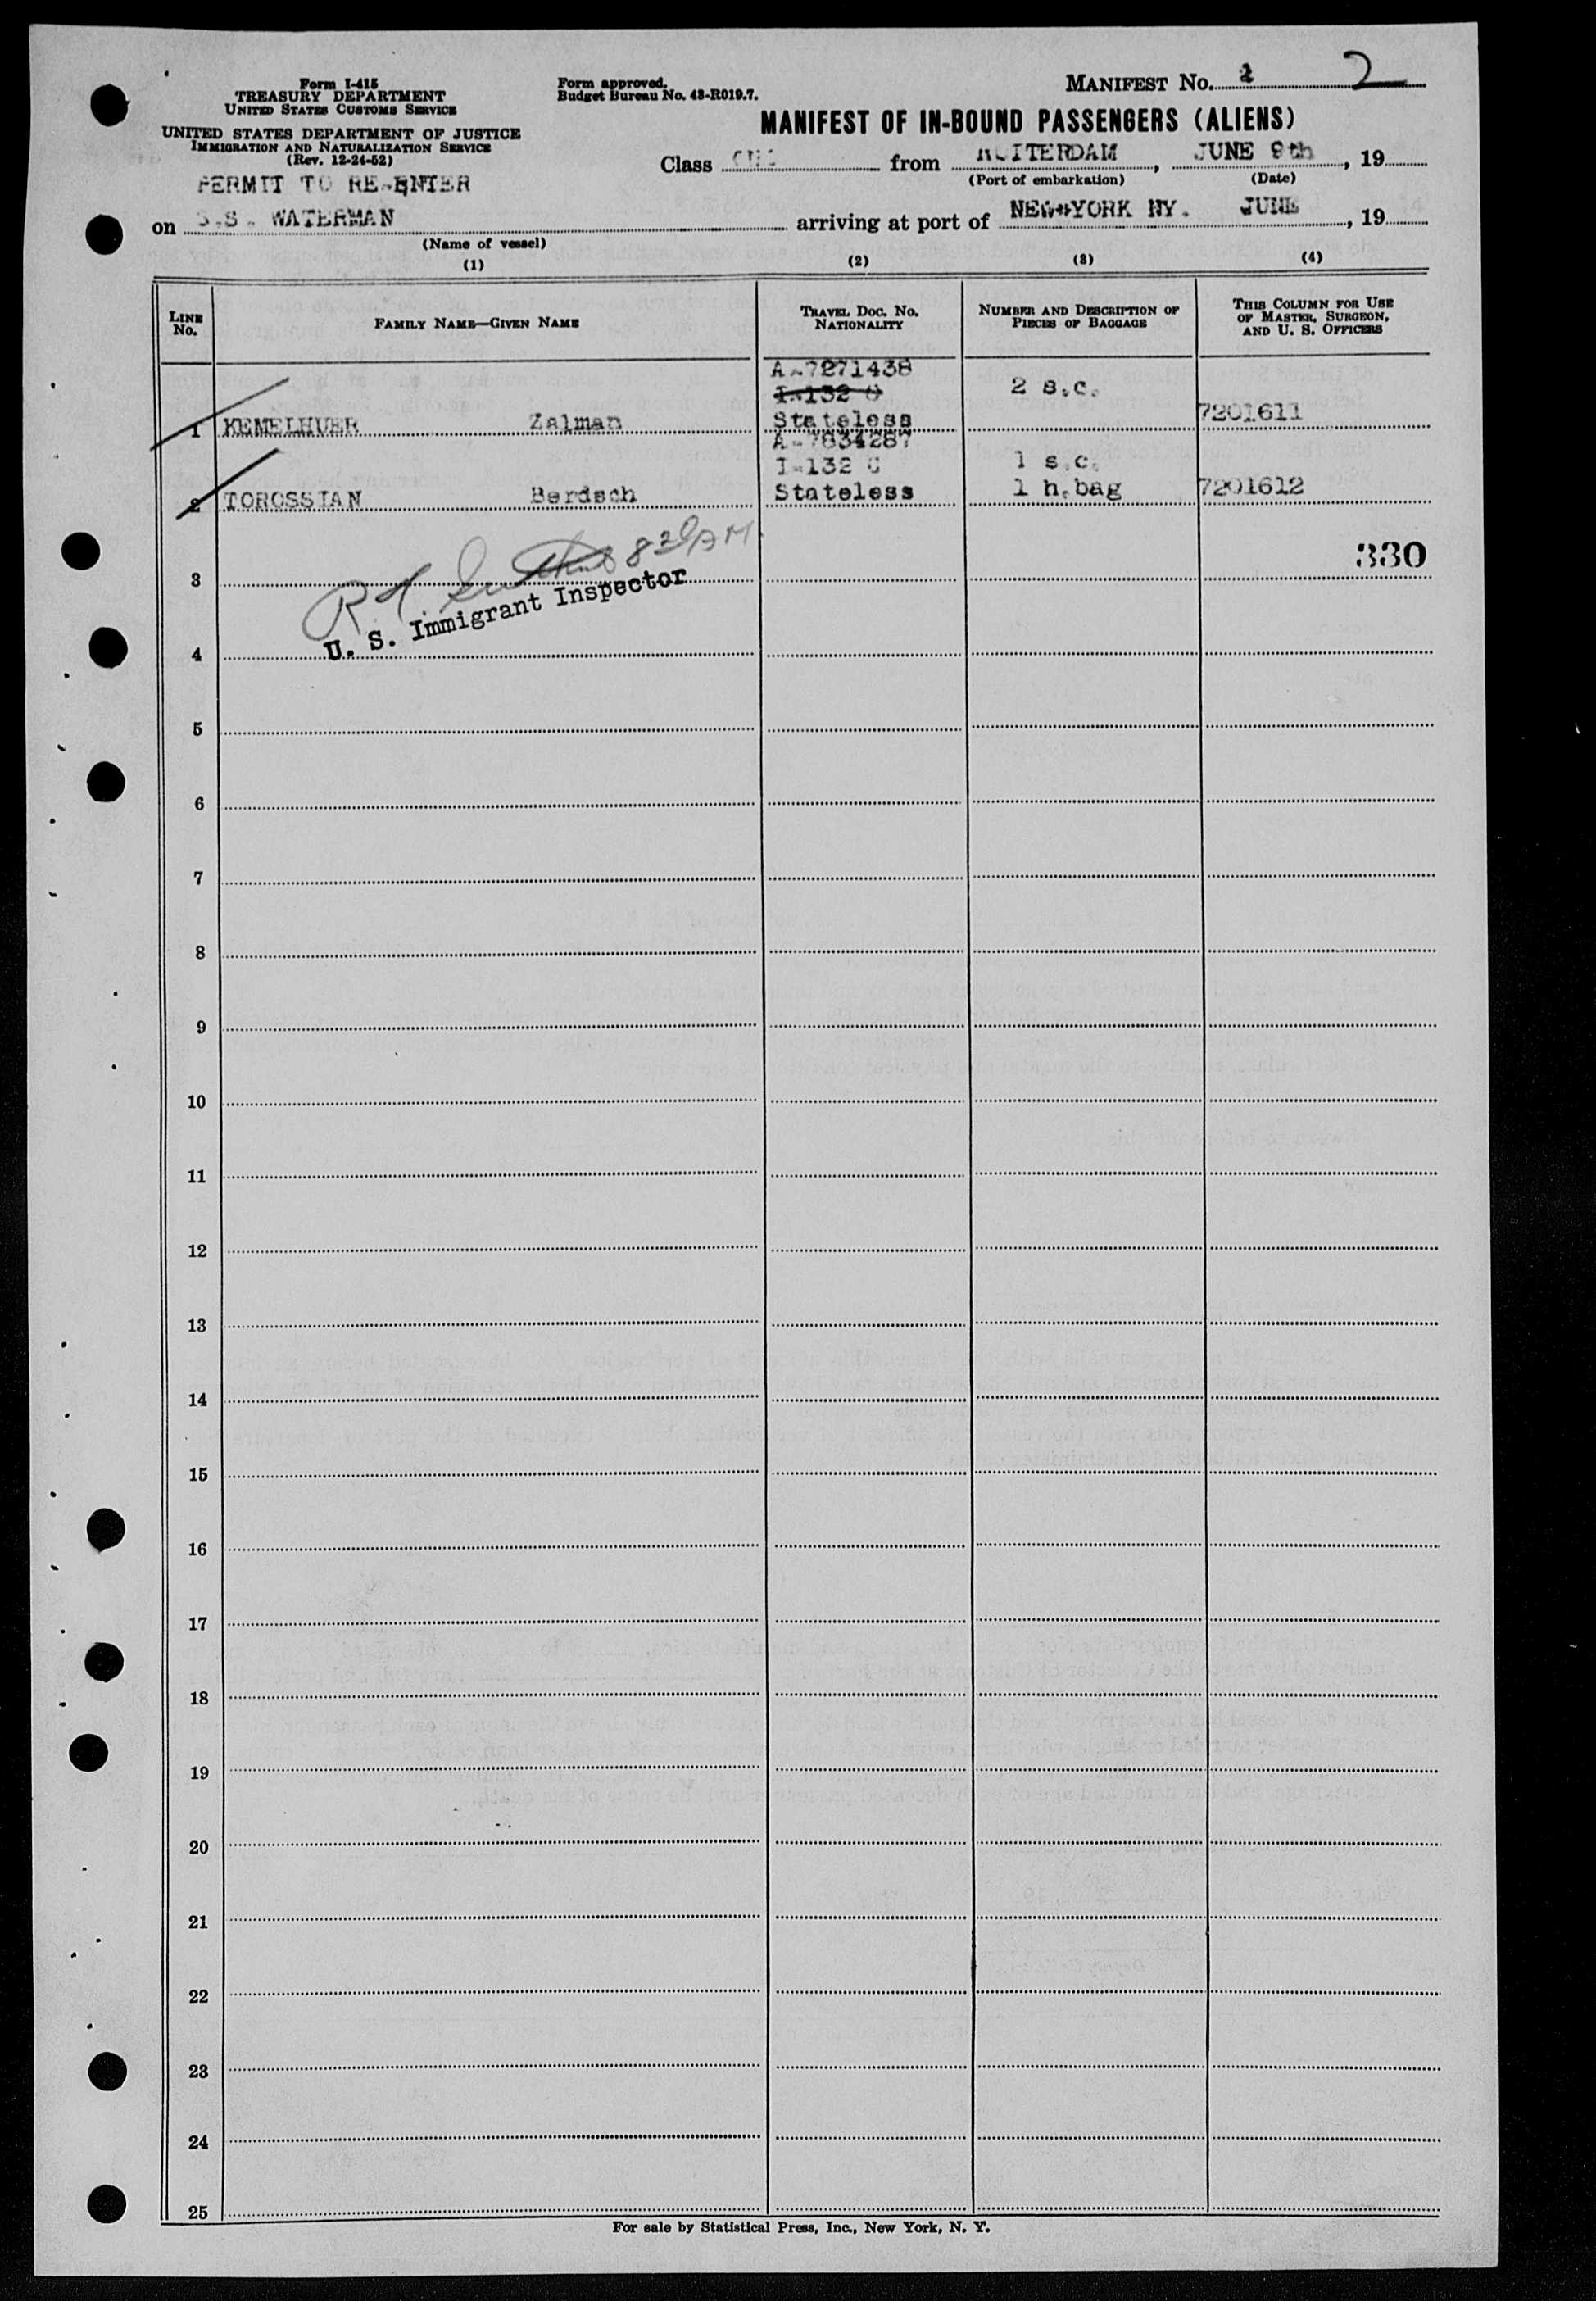 Form I-415
TREASURY DEPARTMENT
UNITED STATES CUSTOMS SERVICE
UNITED STATES DEPARTMENT OF JUSTICE
IMMIGRATION AND NATURALIZATION SERVICE
(Rev. 12-24-52)
PERMIT TO RE-ENTER
Form approved.
Budget Bureau No. 43-R019.7.
MANIFEST No. 2 2
MANIFEST OF IN-BOUND PASSENGERS (ALIENS)
Class ONE from ROTTERDAM, JUNE 9th, 19
(Port of embarkation) (Date)
on S.S. WATERMAN arriving at port of NEW-YORK NY. JUNE, 19
(Name of vessel)
(1) (2) (3) (4)
LINE No. FAMILY NAME—GIVEN NAME TRAVEL DOC. No. NATIONALITY NUMBER AND DESCRIPTION OF PIECES OF BAGGAGE THIS COLUMN FOR USE OF MASTER, SURGEON, AND U. S. OFFICERS
A-7271438
I-132 2 s.c.
1 KEMELHUER Zalman Stateless 7201611
A-7834287
I-132 C 1 s.c.
2 TOROSSIAN Berdsch Stateless 1 h.bag 7201612
R. 8 20 AM
3 330
U. S. Immigrant Inspector
4
5
6
7
8
9
10
11
12
13
14
15
16
17
18
19
20
21
22
23
24
25
For sale by Statistical Press, Inc., New York, N. Y.